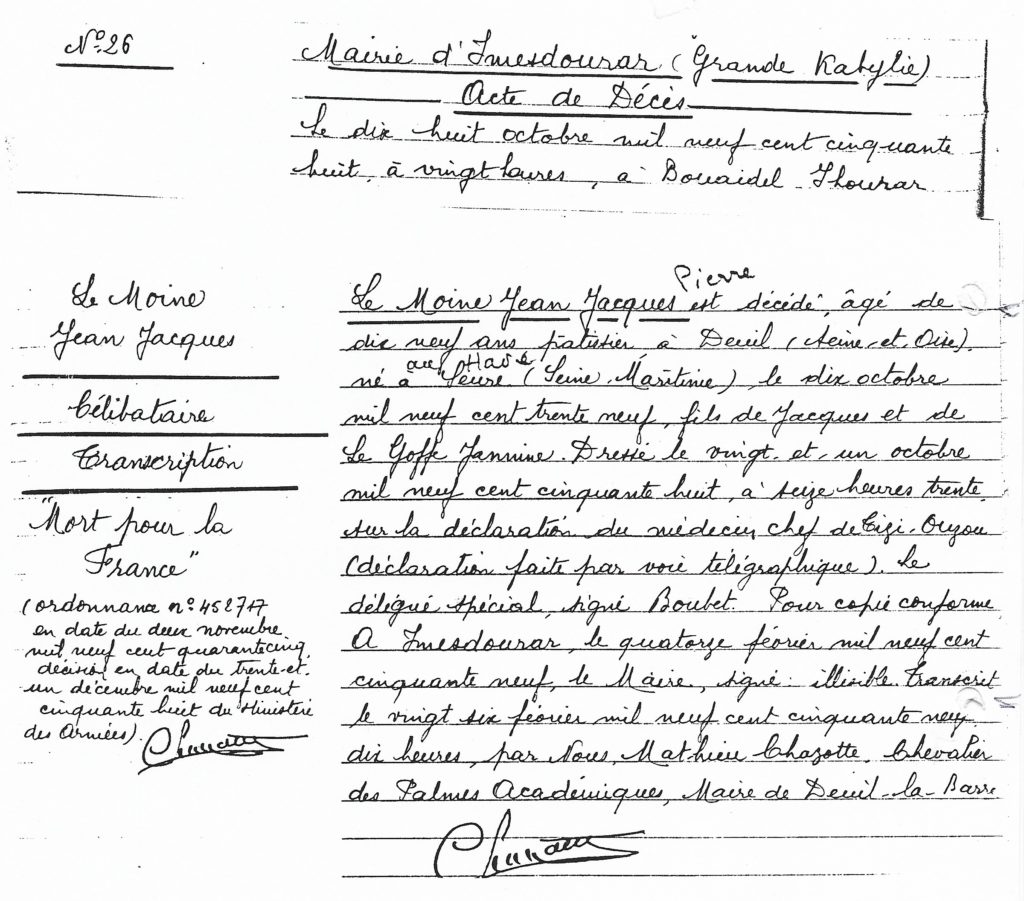 N° 26
Mairie d'Imesdourar (Grande Kabylie)
Acte de Décès
Le dix huit octobre mil neuf cent cinquante
huit, à vingt heures, à Bouaidel Ihourar
Le Moine
Jean Jacques
Célibataire
Transcription
"Mort pour la
France"
(ordonnance n° 452717
en date du deux novembre
mil neuf cent quarante cinq,
décision en date du trente et
un décembre mil neuf cent
cinquante huit du Ministère
des Armées).
Pierre
Le Moine Jean Jacques est décédé, âgé de
dix neuf ans, patissier à Deuil (Seine-et-Oise),
au Havre
né à (Seine-Maritime), le dix octobre
mil neuf cent trente neuf, fils de Jacques et de
Le Goffe Jannine. Dressé le vingt-et-un octobre
mil neuf cent cinquante huit, à seize heures trente
sur la déclaration du médecin chef de Tizi-Ouzou
(déclaration faite par voie télégraphique). Le
délégué spécial, signé Boubet. Pour copie conforme
A Imesdourar, le quatorze février mil neuf cent
cinquante neuf, le Maire, signé: illisible. Transcrit
le vingt six février mil neuf cent cinquante neuf
dix heures, par Nous, Mathieu Chazotte, Chevalier
des Palmes Académiques, Maire de Deuil-la-Barre